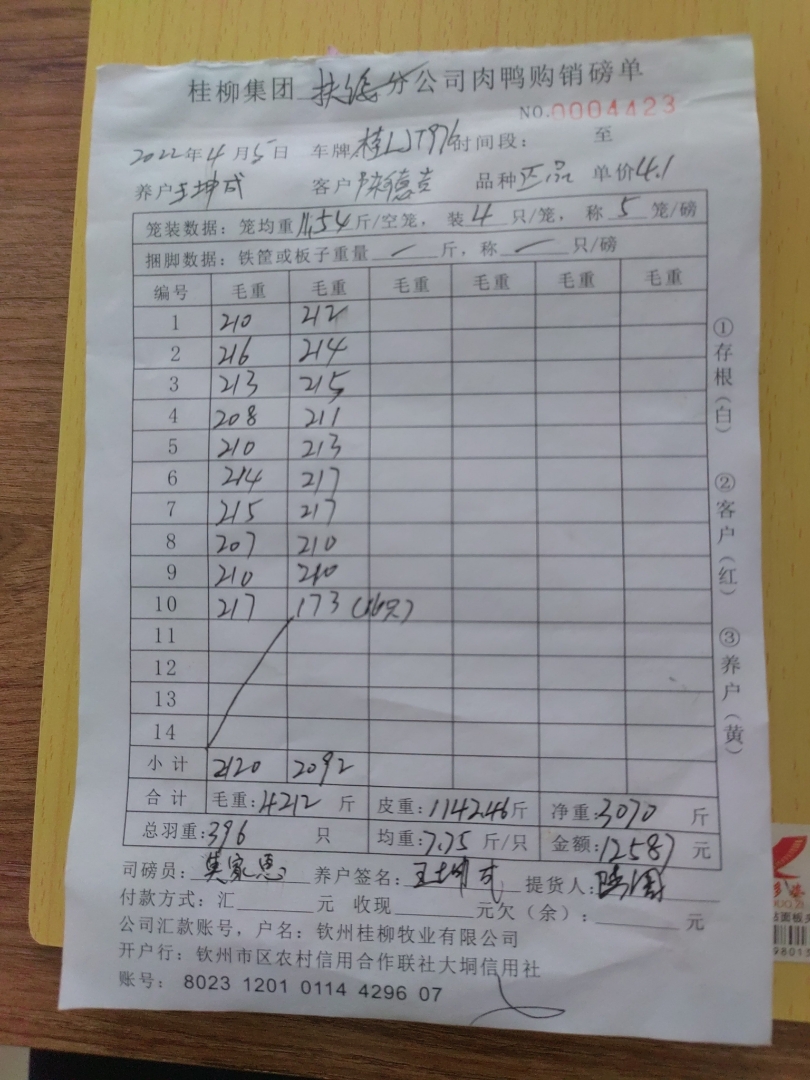 桂柳集团 扶绥分公司肉鸭购销磅单
NO.0004423
2022年4月5日 车牌桂LJT976时间段: 至
养户王坤成 客户 德吉 品种正品 单价4.1
笼装数据: 笼均重11.54斤/空笼, 装4只/笼, 称5笼/磅
捆脚数据: 铁筐或板子重量 — 斤, 称 — 只/磅
编号 毛重 毛重 毛重 毛重 毛重 毛重
1 210 212
2 216 214
3 213 215
4 208 211
5 210 213
6 214 217
7 215 217
8 207 210
9 210 210
10 217 173 (16只)
11
12
13
14
小计 2120 2092
合计 毛重:4212斤 皮重:1142.46斤 净重:3070斤
总羽重:396只 均重:7.75斤/只 金额:12587元
司磅员: 莫家恩 养户签名: 王坤成 提货人:
付款方式: 汇 元 收现 元欠(余): 元
公司汇款账号, 户名: 钦州桂柳牧业有限公司
开户行: 钦州市区农村信用合作联社大垌信用社
账号: 8023 1201 0114 4296 07
①存根(白)
②客户(红)
③养户(黄)
98013